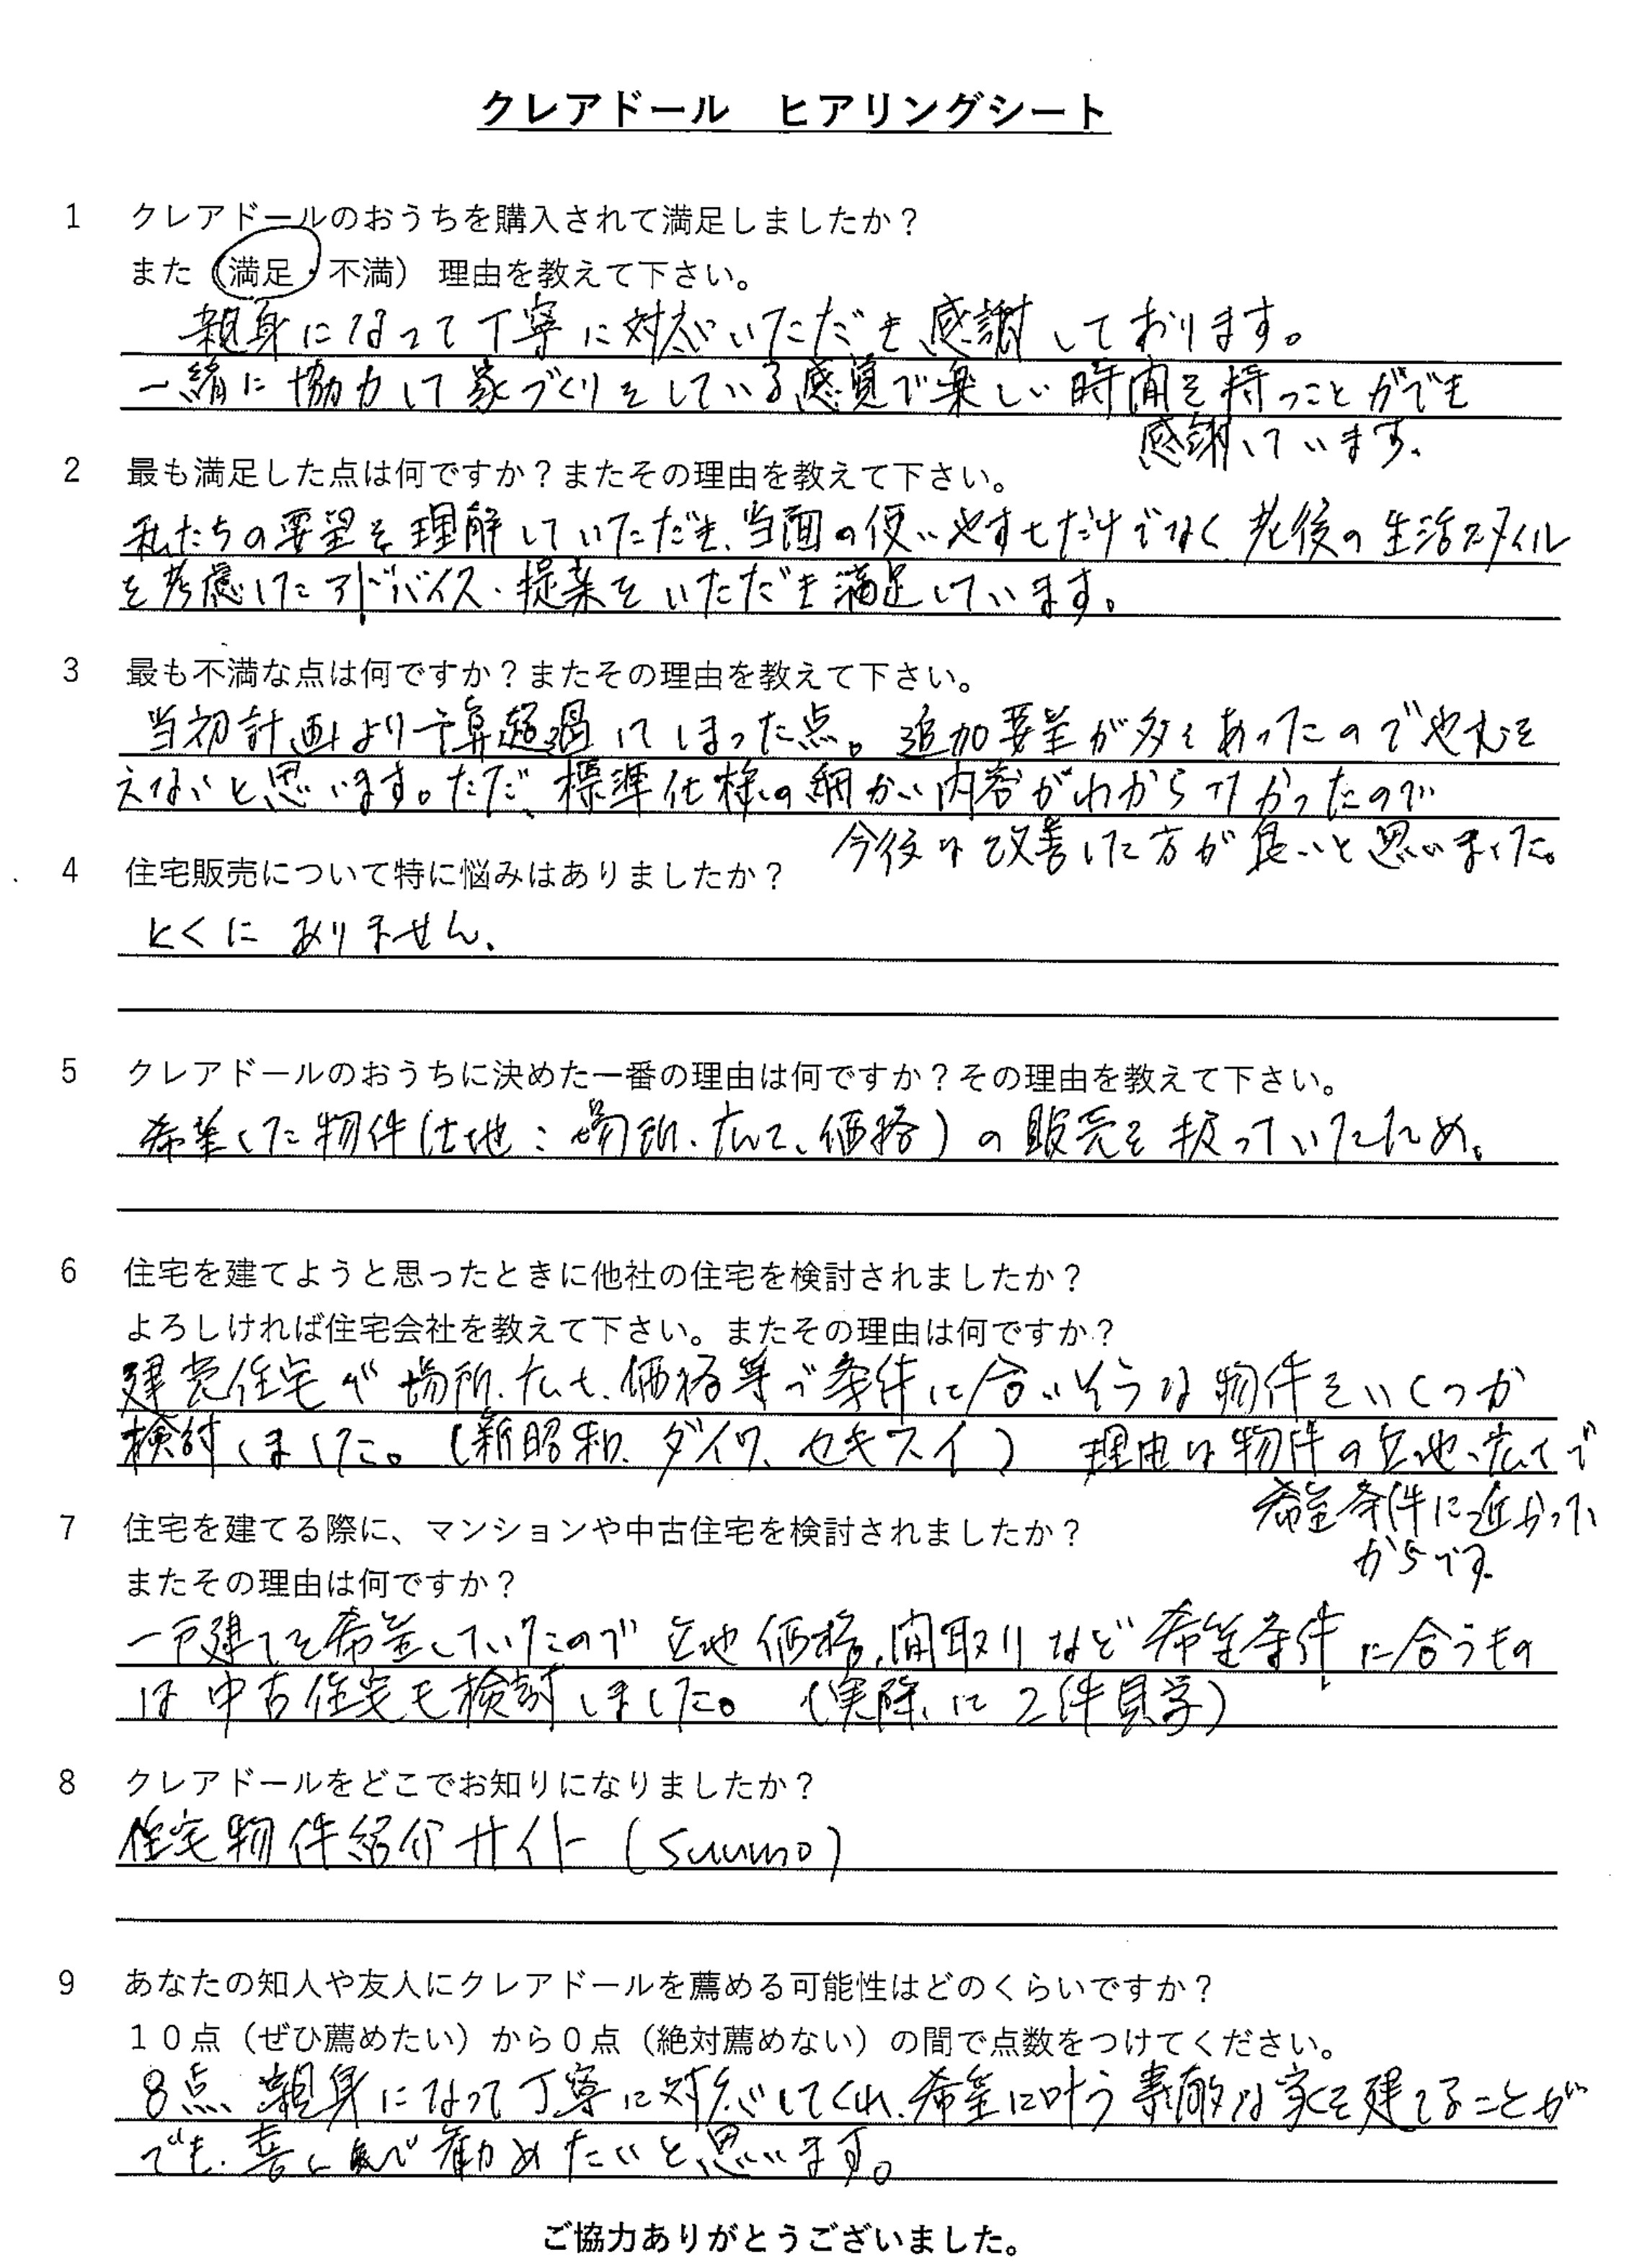 クレアドール　ヒアリングシート
1　クレアドールのおうちを購入されて満足しましたか？
また（満足・不満）　理由を教えて下さい。
親身になって丁寧に対応いただき感謝しております。
一緒に協力して家づくりをしている感覚で楽しい時間を持つことができ
感謝しています。
2　最も満足した点は何ですか？またその理由を教えて下さい。
私たちの要望を理解していただき、当面の使いやすさだけでなく老後の生活スタイル
を考慮したアドバイス・提案をいただき満足しています。
3　最も不満な点は何ですか？またその理由を教えて下さい。
当初計画より予算超過してしまった点。追加要望が多くあったのでやむを
えないと思います。ただ、標準仕様の細かい内容がわからなかったので
今後は改善した方が良いと思いました。
4　住宅販売について特に悩みはありましたか？
とくにありません。
5　クレアドールのおうちに決めた一番の理由は何ですか？その理由を教えて下さい。
希望した物件（土地：場所、広さ、価格）の販売を扱っていたため。
6　住宅を建てようと思ったときに他社の住宅を検討されましたか？
よろしければ住宅会社を教えて下さい。またその理由は何ですか？
建売住宅が場所、広さ、価格等で条件に合いそうな物件をいくつか
検討しました。（新昭和、ダイワ、セキスイ）　理由は物件の立地、広さで
希望条件に近かった
からです。
7　住宅を建てる際に、マンションや中古住宅を検討されましたか？
またその理由は何ですか？
一戸建てを希望していたので立地、価格、間取りなど希望条件に合うもの
は中古住宅も検討しました。（実際に2件見学）
8　クレアドールをどこでお知りになりましたか？
住宅物件紹介サイト（suumo）
9　あなたの知人や友人にクレアドールを薦める可能性はどのくらいですか？
１０点（ぜひ薦めたい）から０点（絶対薦めない）の間で点数をつけてください。
8点、親身になって丁寧に対応してくれ、希望に叶う素敵な家を建てることが
でき、喜んで勧めたいと思います。
ご協力ありがとうございました。